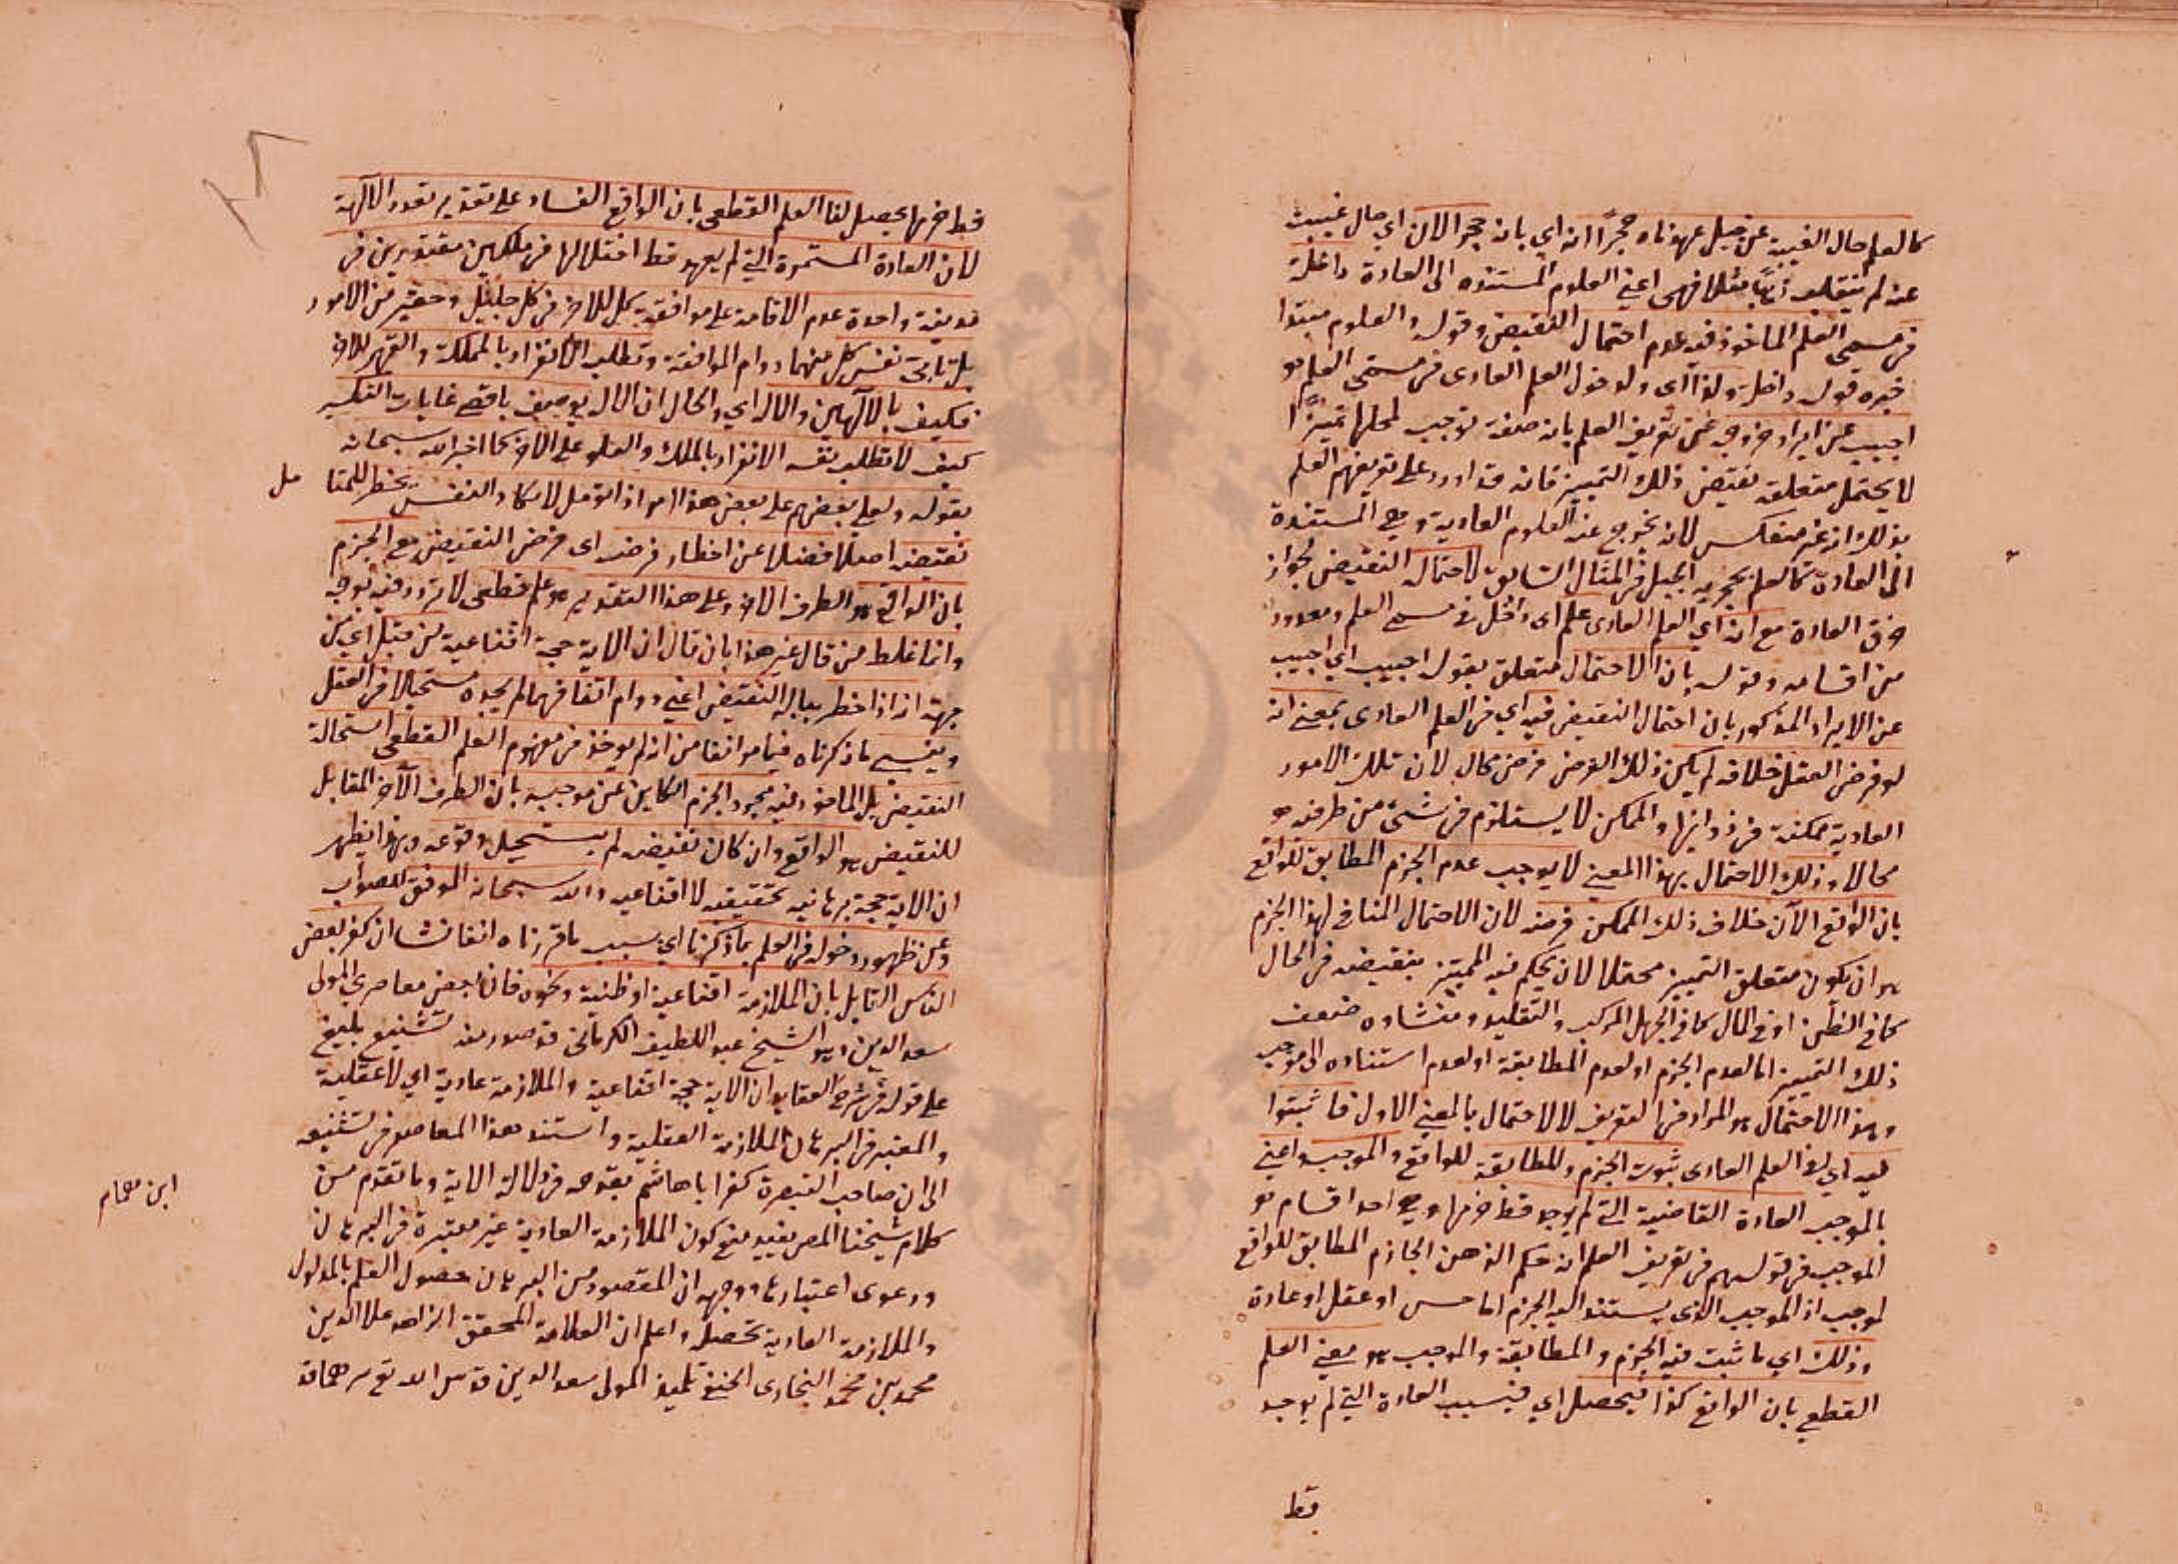 كالعلم حال الغيبة عن جبل عهدناه حجرًا انه اي بانه حجر الان اي حال غيبت
عنه لم ينقلب ذهبًا مثلا فهي اعني العلوم المستنده الى العادة داخلة
في مسمى العلم الماخوذ فيه عدم احتمال النقيض وقوله والعلوم مبتدا
خبره قوله داخلة ولذا اى ولدخول العلم العادى في مسمى العلم هو
اجيب عن ايراد خروجه عن تعريف العلم بانه صفة توجب لمحلها تمييزًا
لا يحتمل متعلقه نقيض ذلك التمييز فانه قد اورد على تعريفهم العلم
بذلك انه غير منعكس لانه يخرج عنه العلوم العادية وهي المستندة
الى العادة كالعلم بحجرية الجبل في المثال السابق لاحتماله النقيض لجواز
خرق العادة مع انه اي العلم العادى علم اى داخل في مسمى العلم ومعدود
من اقسامه وقوله بان الاحتمال متعلق بقوله اجيب اي اجيب
عن الايراد المذكور بان احتمال النقيض فيه اي في العلم العادى بمعنى انه
لو فرض العقل خلافه لم يكن ذلك الفرض فرض محال لان تلك الامور
العادية ممكنة في ذواتها والممكن لا يستلزم في شئ من طرفيه
محالا وذلك الاحتمال بهذا المعنى لا يوجب عدم الجزم المطابق للواقع
بان الواقع الآن خلاف ذلك الممكن فرضه لان الاحتمال المنافي لهذا الجزم
هو ان يكون متعلق التمييز محتملا لان يحكم فيه المميّز بنقيضه في الحال
كما في الظن او في المال كما في الجهل المركب والتقليد ومنشاوه ضعف
ذلك التمييز اما لعدم الجزم او لعدم المطابقة او لعدم استناده الى موجب
وهذا الاحتمال هو المراد في التعريف لا الاحتمال بالمعنى الاول فاثبتوا
فيه اي في العلم العادى ثبوت الجزم والمطابقة للواقع والموجب واعني
بالموجب العادة القاضية التي لم يوجد قط خرمها وهي احد اقسام
الموجب في قولهم في تعريف العلم انه حكم الذهن الجازم المطابق للواقع
لموجب اذ الموجب الذى يستند اليه الجزم اما حس او عقل او عادة
وذلك اي ما ثبت فيه الجزم والمطابقة والموجب هو معنى العلم
القطعي بان الواقع كذا فيحصل اي فبسبب العادة التي لم يوجد
قط
قط خرمها يحصل لنا العلم القطعى بان الواقع الفساد على تقدير تعدد الالهة
لان العادة المستمرة التي لم يعهد قط اختلالها في ملكين مقتدرين في
مدينة واحدة عدم الاقامة على موافقة كل للاخر في كل جليل وحقير من الامور
بل تابى نفس كل منهما دوام الموافقة وتطلب الانفراد بالمملكة والقهر للاخر
فكيف بالالهين والاله اي والحال ان الاله يوصف باقصى غايات التكبر
كيف لا تطلب نفسه الانفراد بالملك والعلو على الاخر كما اخبر الله سبحانه
بقوله ولعلى بعضهم على بعض هذا امر اذا تؤمل لا تكاد النفس يخطر للمتا
مل
نقيضه اصلا فضلا عن اخطار فرضه اى فرض النقيض مع الجزم
بان الواقع هو الطرف الاخر وعلى هذا التقدير هو علم قطعى لا تردد فيه بوجه
وانما غلط من قال غير هذا بان قال ان الاية حجة اقناعية من قبل اي من
جهة انه اذا خطر بباله النقيض اعني دوام اتفاقهما لم يجده مستحيلا في العقل
ونسي ما ذكرناه فيما مر انفا من انه لم يوخذ في مفهوم العلم القطعى استحالة
النقيض بل الماخوذ فيه مجرد الجزم الكاين عن موجب بان الطرف الآخر المقابل
للنقيض هو الواقع وان كان نقيضه لم يستحيل وقوعه وبهذا يظهر
ان الاية حجة برهانية تحقيقيه لا اقناعيه والله سبحانه الموفق للصواب
وعن ظهور دخوله في العلم بما ذكرنا اي بسبب ما قررناه انفا نشا ان كفر بعض
الناس القايل بان الملازمة اقناعية او ظنية ونحوه فان بعض معاصرى المولى
سعد الدين وهو الشيخ عبد اللطيف الكرمانى قد صدر منه تشنيع بليغ
على قوله في شرح العقايد ان الاية حجة اقناعية والملازمة عادية اي لا عقلية
والمعتبر في البرهان الملازمة العقلية واستند هذا المعاصر في تشنيعه
الى ان صاحب التبصرة كفر ابا هاشم بقدحه في دلالة الاية وما تقدم من
ابن همام
كلام شيخنا المص يفيد منع كون الملازمة العادية غير معتبرة في البرهان
ودعوى اعتبارها ووجهه ان المقصود من البرهان حصول العلم بالمدلول
والملازمة العادية تحصله واعلم ان العلامة المحقق الزاهد علا الدين
محمد بن محمد البخارى الحنفي تلميذ المولى سعد الدين قدس الله تع سرهما قد